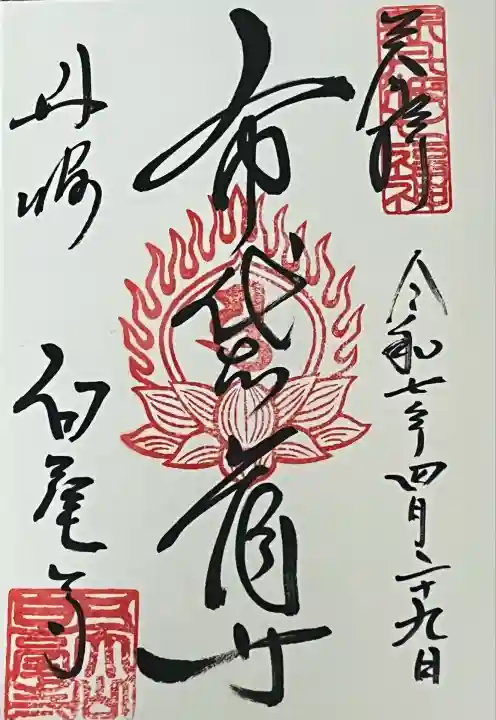 奉拝
令和七年四月二十九日
布袋尊
丹波
白毫寺